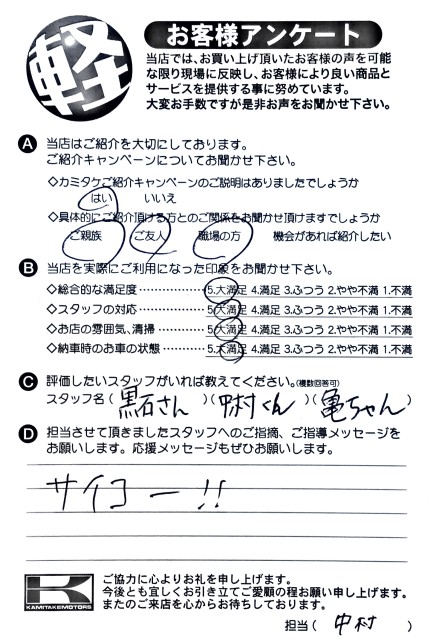 軽
お客様アンケート
当店では、お買い上げ頂いたお客様の声を可能
な限り現場に反映し、お客様により良い商品と
サービスを提供する事に努めています。
大変お手数ですが是非お声をお聞かせ下さい。
A 当店はご紹介を大切にしております。
ご紹介キャンペーンについてお聞かせ下さい。
◇カミタケご紹介キャンペーンのご説明はありましたでしょうか
はい いいえ
◇具体的にご紹介頂ける方とのご関係をお聞かせ頂けますでしょうか
ご親族 ご友人 職場の方 機会があれば紹介したい
B 当店を実際にご利用になった印象をお聞かせ下さい。
◇総合的な満足度 ………… 5.大満足 4.満足 3.ふつう 2.やや不満 1.不満
◇スタッフの対応 ………… 5.大満足 4.満足 3.ふつう 2.やや不満 1.不満
◇お店の雰囲気、清掃 ……… 5.大満足 4.満足 3.ふつう 2.やや不満 1.不満
◇納車時のお車の状態 ……… 5.大満足 4.満足 3.ふつう 2.やや不満 1.不満
C 評価したいスタッフがいれば教えてください。(複数回答可)
スタッフ名 ( 黒石さん )( 中村くん )( 亀ちゃん )
D 担当させて頂きましたスタッフへのご指摘、ご指導メッセージを
お願いします。応援メッセージもぜひお願いします。
サイコー!!
K
KAMITAKEMOTORS
ご協力に心よりお礼を申し上げます。
今後とも宜しくお引き立てご愛顧の程お願い申し上げます。
またのご来店を心からお待ちしております。
担当 ( 中村 )